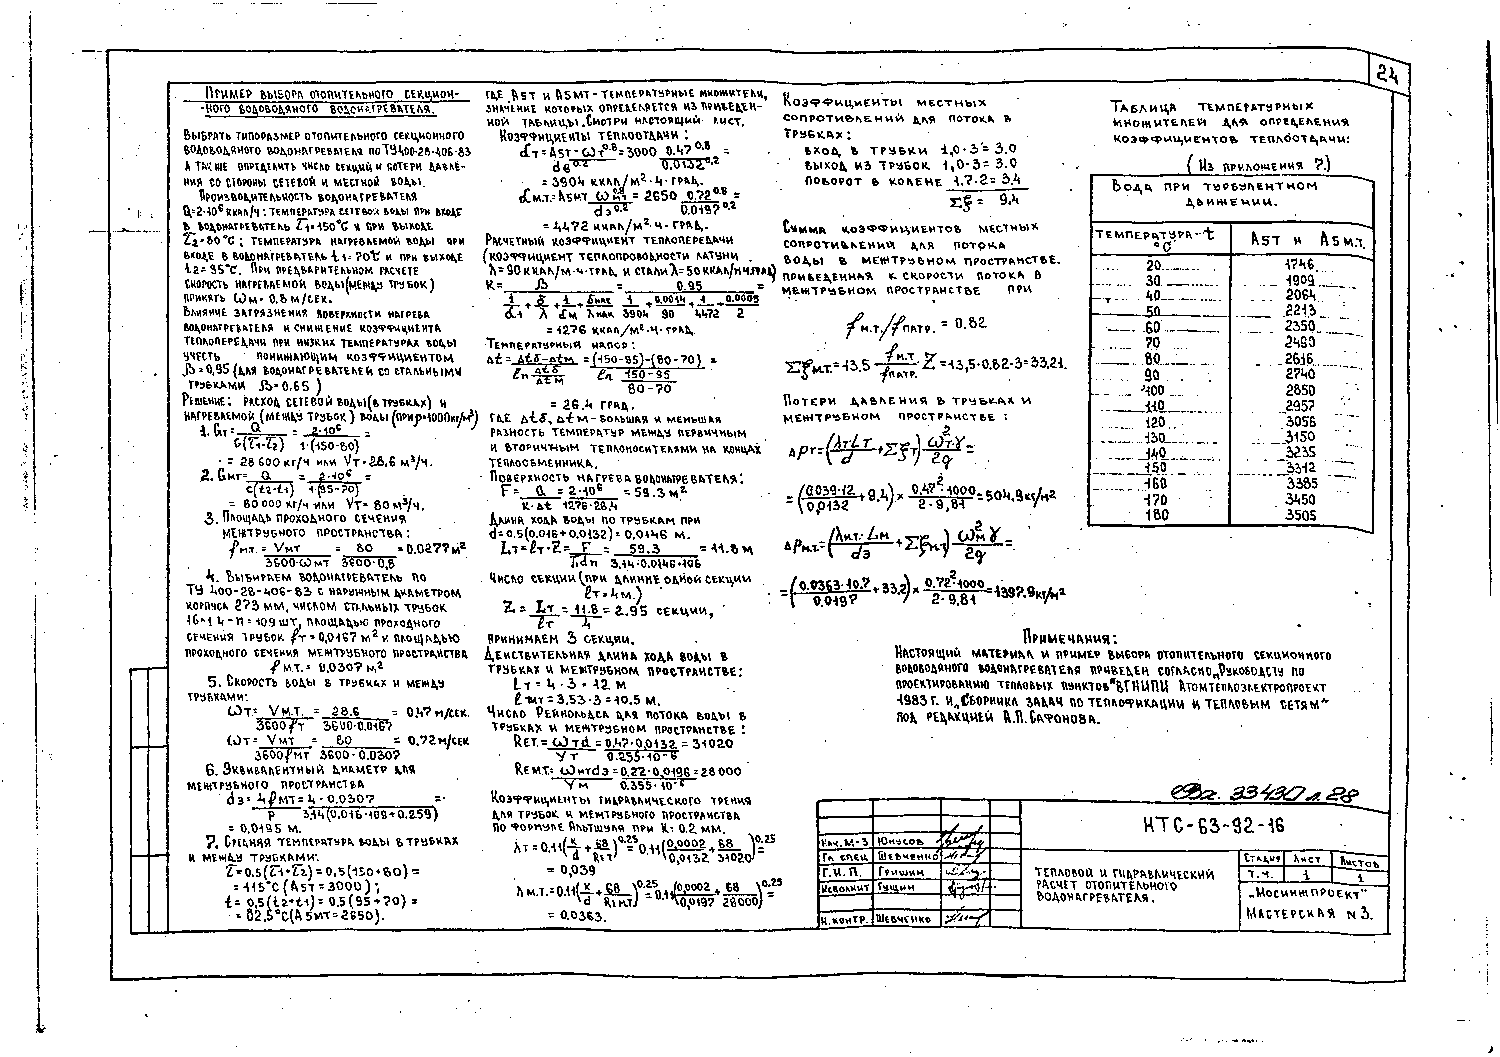 24
ПРИМЕР ВЫБОРА ОТОПИТЕЛЬНОГО СЕКЦИОН-
-НОГО ВОДОВОДЯНОГО ВОДОНАГРЕВАТЕЛЯ.
ВЫБРАТЬ ТИПОРАЗМЕР ОТОПИТЕЛЬНОГО СЕКЦИОННОГО
ВОДОВОДЯНОГО ВОДОНАГРЕВАТЕЛЯ ПО ТУ400-28-406-83
А ТАКЖЕ ОПРЕДЕЛИТЬ ЧИСЛО СЕКЦИЙ И ПОТЕРИ ДАВЛЕ-
НИЯ СО СТОРОНЫ СЕТЕВОЙ И МЕСТНОЙ ВОДЫ.
ПРОИЗВОДИТЕЛЬНОСТЬ ВОДОНАГРЕВАТЕЛЯ
Q=2·10⁶ ККАЛ/Ч: ТЕМПЕРАТУРА СЕТЕВОЙ ВОДЫ ПРИ ВХОДЕ
В ВОДОНАГРЕВАТЕЛЬ τ1=150°С И ПРИ ВЫХОДЕ
τ2=80°С; ТЕМПЕРАТУРА НАГРЕВАЕМОЙ ВОДЫ ПРИ
ВХОДЕ В ВОДОНАГРЕВАТЕЛЬ t1=70°С И ПРИ ВЫХОДЕ
t2=95°С. ПРИ ПРЕДВАРИТЕЛЬНОМ РАСЧЕТЕ
СКОРОСТЬ НАГРЕВАЕМОЙ ВОДЫ (МЕЖДУ ТРУБОК)
ПРИНЯТЬ ωм=0,8 М/СЕК.
ВЛИЯНИЕ ЗАГРЯЗНЕНИЯ ПОВЕРХНОСТИ НАГРЕВА
ВОДОНАГРЕВАТЕЛЯ И СНИЖЕНИЕ КОЭФФИЦИЕНТА
ТЕПЛОПЕРЕДАЧИ ПРИ НИЗКИХ ТЕМПЕРАТУРАХ ВОДЫ
УЧЕСТЬ ПОНИЖАЮЩИМ КОЭФФИЦИЕНТОМ
β=0,95 (ДЛЯ ВОДОНАГРЕВАТЕЛЕЙ СО СТАЛЬНЫМИ
ТРУБКАМИ β=0.65)
РЕШЕНИЕ: РАСХОД СЕТЕВОЙ ВОДЫ (В ТРУБКАХ) И
НАГРЕВАЕМОЙ (МЕЖДУ ТРУБОК) ВОДЫ (ПРИ ρ=1000КГ/М³)
1. Gт= Q / С(τ1-τ2) = 2·10⁶ / 1·(150-80) =
= 28600 КГ/Ч ИЛИ Vт=28,6 М³/Ч.
2. Gмт= Q / С(t2-t1) = 2·10⁶ / 1(95-70) =
= 80000 КГ/Ч ИЛИ Vт= 80 М³/Ч.
3. ПЛОЩАДЬ ПРОХОДНОГО СЕЧЕНИЯ
МЕЖТРУБНОГО ПРОСТРАНСТВА:
fм.т. = Vмт / 3600·ωмт = 80 / 3600·0,8 = 0.0277 М²
4. ВЫБИРАЕМ ВОДОНАГРЕВАТЕЛЬ ПО
ТУ 400-28-406-83 С НАРУЖНЫМ ДИАМЕТРОМ
КОРПУСА 273 ММ, ЧИСЛОМ СТАЛЬНЫХ ТРУБОК
16×1,4-n=109 ШТ, ПЛОЩАДЬЮ ПРОХОДНОГО
СЕЧЕНИЯ ТРУБОК fт=0,0167 М² И ПЛОЩАДЬЮ
ПРОХОДНОГО СЕЧЕНИЯ МЕЖТРУБНОГО ПРОСТРАНСТВА
fм.т.= 0.0307 М²
5. СКОРОСТЬ ВОДЫ В ТРУБКАХ И МЕЖДУ
ТРУБКАМИ:
ωт= Vм.т. / 3600fт = 28.6 / 3600·0.0167 = 0,47 М/СЕК.
ωт= Vмт / 3600fмт = 80 / 3600·0.0307 = 0,72 М/СЕК
6. ЭКВИВАЛЕНТНЫЙ ДИАМЕТР ДЛЯ
МЕЖТРУБНОГО ПРОСТРАНСТВА
dэ= 4fмт / P = 4·0,0307 / 3,14(0,016·109+0.259) =
= 0,0195 М.
7. СРЕДНЯЯ ТЕМПЕРАТУРА ВОДЫ В ТРУБКАХ
И МЕЖДУ ТРУБКАМИ:
τ=0.5(τ1+τ2)=0,5(150+80)=
=115°С (А5т=3000);
t=0,5(t2+t1)=0.5(95+70)=
=82,5°С (А5мт=2650).
ГДЕ А5т И А5мт-ТЕМПЕРАТУРНЫЕ МНОЖИТЕЛИ,
ЗНАЧЕНИЕ КОТОРЫХ ОПРЕДЕЛЯЕТСЯ ИЗ ПРИВЕДЕН-
НОЙ ТАБЛИЦЫ. СМОТРИ НАСТОЯЩИЙ ЛИСТ.
КОЭФФИЦИЕНТЫ ТЕПЛООТДАЧИ:
αт=А5т· ωт^0.8 / dв^0.2 =3000 0.47^0.8 / 0.0132^0.2
=3904 ККАЛ/М²·Ч·ГРАД.
αм.т.=А5мт ωмт^0.8 / dэ^0.2 = 2650 0.72^0.8 / 0.0197^0.2 =
=4472 ККАЛ/М²·Ч·ГРАД.
РАСЧЕТНЫЙ КОЭФФИЦИЕНТ ТЕПЛОПЕРЕДАЧИ
(КОЭФФИЦИЕНТ ТЕПЛОПРОВОДНОСТИ ЛАТУНИ
λ=90 ККАЛ/М·Ч·ГРАД И СТАЛИ λ=50 ККАЛ/М·Ч·ГРАД)
К= β / (1/αт + δ/λ + 1/αм + δнак/λнак) = 0.95 / (1/3904 + 0.0014/90 + 1/4472 + 0.0005/2) =
=1276 ККАЛ/М²·Ч·ГРАД.
ТЕМПЕРАТУРНЫЙ НАПОР:
Δt= Δtб-Δtм / ln Δtб/Δtм = (150-95)-(80-70) / ln 150-95/80-70 =
= 26.4 ГРАД.
ГДЕ Δtб, Δtм-БОЛЬШАЯ И МЕНЬШАЯ
РАЗНОСТЬ ТЕМПЕРАТУР МЕЖДУ ПЕРВИЧНЫМ
И ВТОРИЧНЫМ ТЕПЛОНОСИТЕЛЯМИ НА КОНЦАХ
ТЕПЛООБМЕННИКА.
ПОВЕРХНОСТЬ НАГРЕВА ВОДОНАГРЕВАТЕЛЯ:
F= Q / К·Δt = 2·10⁶ / 1276·26,4 = 59.3 М²
ДЛИНА ХОДА ВОДЫ ПО ТРУБКАМ ПРИ
d=0.5(0,016+0,0132)=0,0146 М.
Lт=lт·Z= F / πdn = 59.3 / 3,14·0.0146·106 = 11.8 М
ЧИСЛО СЕКЦИИ (ПРИ ДЛИННЕ ОДНОЙ СЕКЦИИ
lт=4м.)
Z= Lт / lт = 11.8 / 4 = 2.95 СЕКЦИИ,
ПРИНИМАЕМ 3 СЕКЦИИ.
ДЕЙСТВИТЕЛЬНАЯ ДЛИНА ХОДА ВОДЫ В
ТРУБКАХ И МЕЖТРУБНОМ ПРОСТРАНСТВЕ:
Lт=4·3=12 М
lмт=3,53·3=10,5 М.
ЧИСЛО РЕЙНОЛЬДСА ДЛЯ ПОТОКА ВОДЫ В
ТРУБКАХ И МЕЖТРУБНОМ ПРОСТРАНСТВЕ:
Rет.= ωтd / Yт = 0.47·0,0132 / 0.255·10⁻⁶ = 31020
Rем.т.= ωмтdэ / Yм = 0.22·0,0196 / 0.355·10⁻⁶ =28000
КОЭФФИЦИЕНТЫ ГИДРАВЛИЧЕСКОГО ТРЕНИЯ
ДЛЯ ТРУБОК И МЕЖТРУБНОГО ПРОСТРАНСТВА
ПО ФОРМУЛЕ АЛЬТШУЛЯ ПРИ К=0.2 ММ.
λт=0.11(к/d + 68/Rет)^0.25 =0.11(0,0002/0,0132 + 68/31020)^0.25 =
=0,039
λм.т.=0.11(к/d + 68/Rемт)^0.25 =0.11(0,0002/0,0197 + 68/28000)^0.25 =
= 0.0363.
КОЭФФИЦИЕНТЫ МЕСТНЫХ
СОПРОТИВЛЕНИЙ ДЛЯ ПОТОКА В
ТРУБКАХ:
ВХОД В ТРУБКИ 1,0·3=3.0
ВЫХОД ИЗ ТРУБОК 1,0·3=3.0
ПОВОРОТ В КОЛЕНЕ 1.7·2=3,4
Σξ = 9,4
СУММА КОЭФФИЦИЕНТОВ МЕСТНЫХ
СОПРОТИВЛЕНИЙ ДЛЯ ПОТОКА
ВОДЫ В МЕЖТРУБНОМ ПРОСТРАНСТВЕ.
ПРИВЕДЕННАЯ К СКОРОСТИ ПОТОКА В
МЕЖТРУБНОМ ПРОСТРАНСТВЕ ПРИ
fм.т./fпатр. = 0.82
Σξм.т.=13,5 fм.т./fпатр. Z =13,5·0.82·3=33,21.
ПОТЕРИ ДАВЛЕНИЯ В ТРУБКАХ И
МЕЖТРУБНОМ ПРОСТРАНСТВЕ:
ΔPт=(λтLт/d + Σξт) ωт²γ/2g =
=(0,039·12/0,0132 + 9,4)× 0.47²·1000/2·9,81 =504,9 КГ/М²
ΔPм.т.=(λм.т.·Lм/dэ + Σξм.т.) ωм²γ/2g =
=(0.0363·10,7/0.0197 + 33,2)× 0.72²·1000/2·9,81 =1397.9 КГ/М²
ТАБЛИЦА ТЕМПЕРАТУРНЫХ
МНОЖИТЕЛЕЙ ДЛЯ ОПРЕДЕЛЕНИЯ
КОЭФФИЦИЕНТОВ ТЕПЛООТДАЧИ:
(ИЗ ПРИЛОЖЕНИЯ 7.)
ВОДА ПРИ ТУРБУЛЕНТНОМ
ДВИЖЕНИИ.
ТЕМПЕРАТУРА-t °С А5т И А5м.т.
20 1746
30 1909
40 2064
50 2213
60 2350
70 2490
80 2616
90 2740
100 2850
110 2957
120 3056
130 3150
140 3235
150 3312
160 3385
170 3450
180 3505
ПРИМЕЧАНИЯ:
НАСТОЯЩИЙ МАТЕРИАЛ И ПРИМЕР ВЫБОРА ОТОПИТЕЛЬНОГО СЕКЦИОННОГО
ВОДОВОДЯНОГО ВОДОНАГРЕВАТЕЛЯ ПРИВЕДЕН СОГЛАСНО „РУКОВОДСТУ ПО
ПРОЕКТИРОВАНИЮ ТЕПЛОВЫХ ПУНКТОВ" ВГНИПИ АТОМТЕПЛОЭЛЕКТРОПРОЕКТ
1983 Г. И „СБОРНИКА ЗАДАЧ ПО ТЕПЛОФИКАЦИИ И ТЕПЛОВЫМ СЕТЯМ"
ПОД РЕДАКЦИЕЙ А.П. САФОНОВА.
33430 л.28
НТС-63-92-16
НАЧ. М-3 ЮНУСОВ
ГЛ СПЕЦ ШЕВЧЕНКО
Г. И. П. ГРИШИН
ИСПОЛНИТ ГУЩИН
Н. КОНТР. ШЕВЧЕНКО
ТЕПЛОВОЙ И ГИДРАВЛИЧЕСКИЙ
РАСЧЕТ ОТОПИТЕЛЬНОГО
ВОДОНАГРЕВАТЕЛЯ.
СТАДИЯ ЛИСТ ЛИСТОВ
Т.Ч. 1 1
„МОСИНЖПРОЕКТ"
МАСТЕРСКАЯ N3.